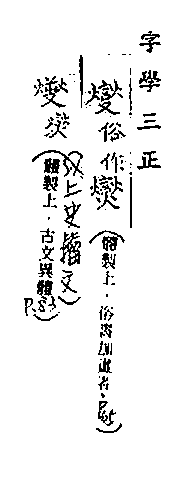 字學三正
燮俗作爕（體製上．俗字加畫者．P.65）
（以上史籀文）
（體製上．古文異體P.53）